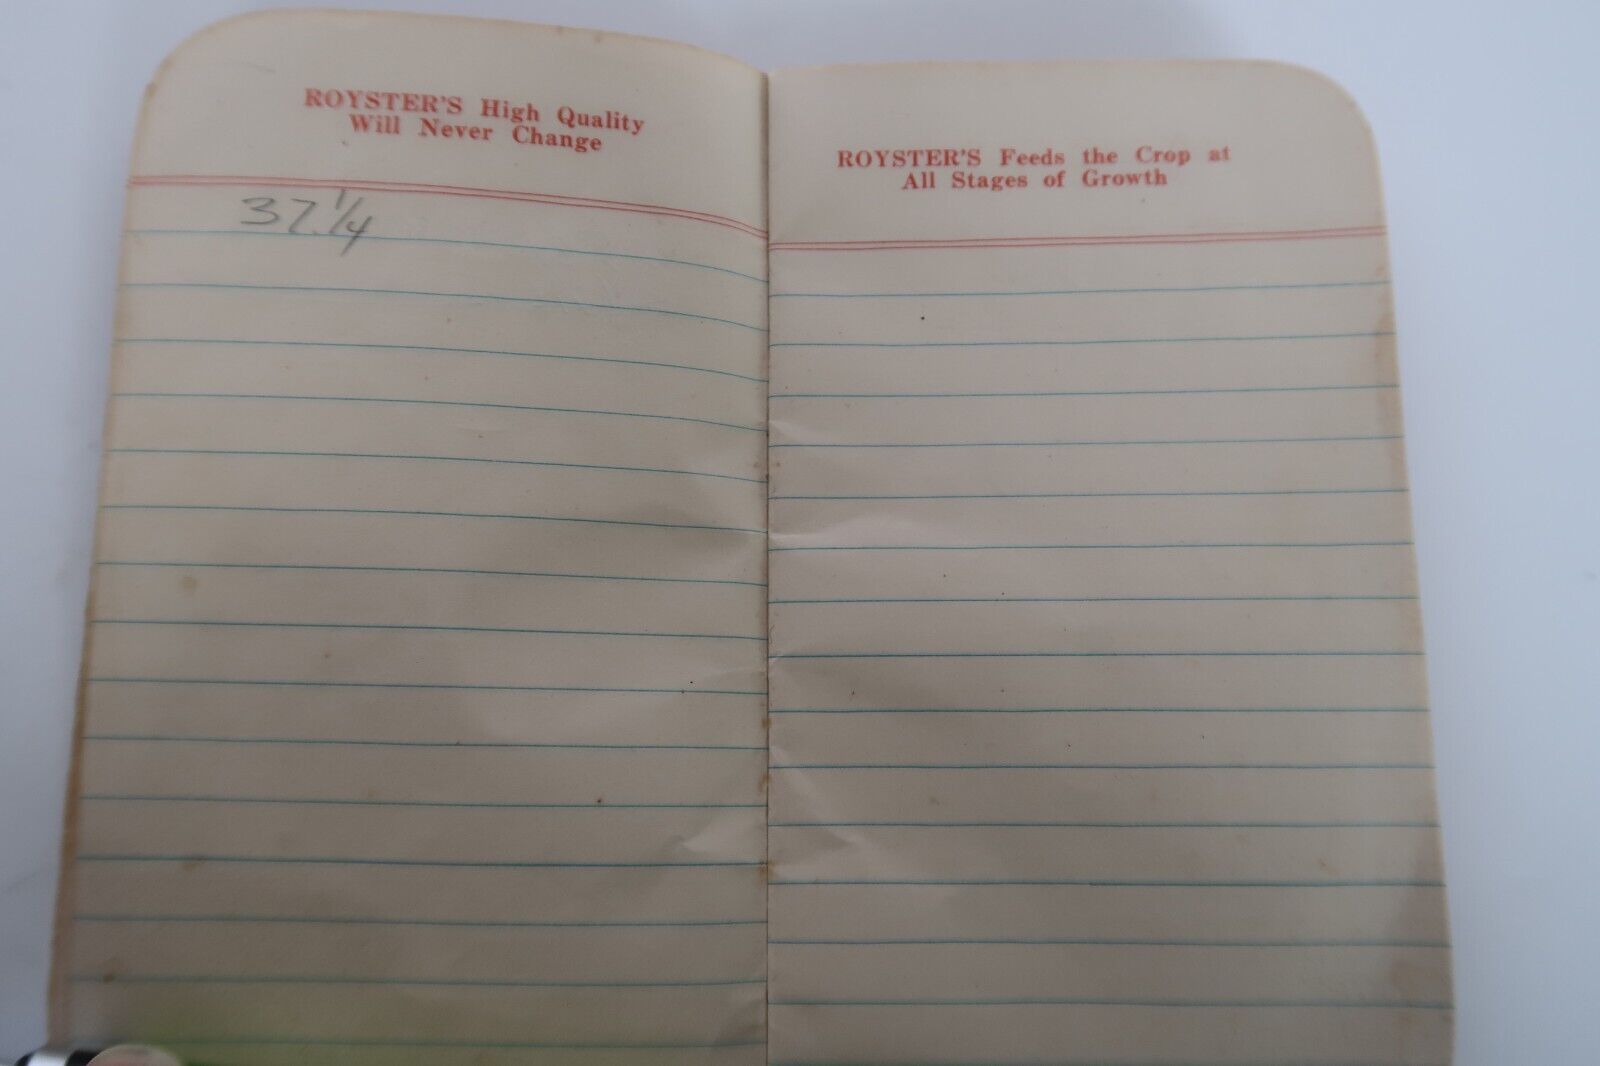 ROYSTER'S High Quality
Will Never Change
37 1/4
ROYSTER'S Feeds the Crop at
All Stages of Growth